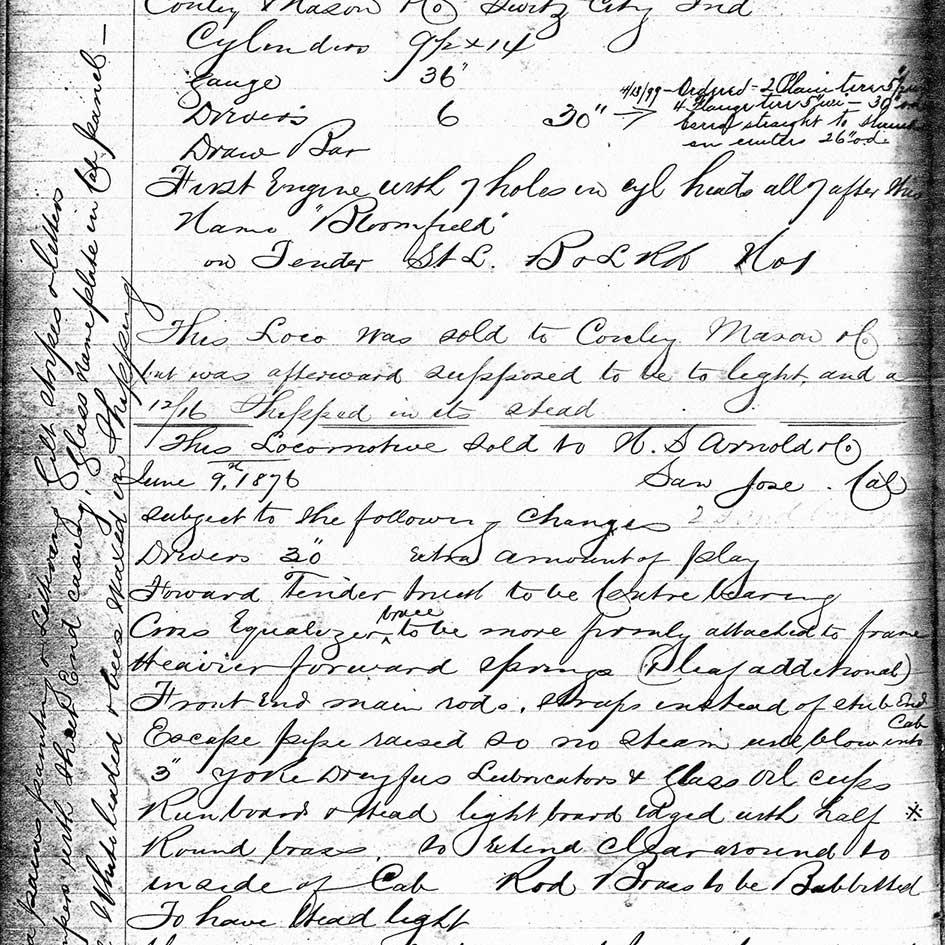 Conley & Mason & Co Switz City Ind
Cylinders 9½ x 14
Gauge 36"
Drivers 6 30"
4/13/99 - Ordered - 2 Plain tires 5"
4 Flange tires 5" - 30" od
straight to
on centers 26" od
Draw Bar
First Engine with 7 holes in cyl heads all 7 after this
Name "Bloomfield"
on Tender St L. B & L RR No 1
This Loco was sold to Conley Mason & Co
but was afterward supposed to be to light, and a
12/16 Shipped in its stead
This Locomotive sold to N. S Arnold & Co
June 9th, 1876 San Jose. Cal
subject to the following changes
Drivers 30" Extra amount of play
Foward Tender truck to be Centre bearing
Cross Equalizer brace to be more firmly attached to frame
Heavier forward springs (1 leaf additional)
Front End main rods, straps instead of stub End
Escape pipe raised so no steam will blow into Cab
3" yoke Dreyfus Lubricators & Glass Oil cups
Runboard & Head light board Edged with half *
Round brass, to Extend clear around to
inside of Cab Rod Brass to be Babbitted
To have Head light
painting & lettering Gilt stripes & letters
with sheet End casing, Glass name plate in Cab panel -
White leaded & bees waxed in Shipping